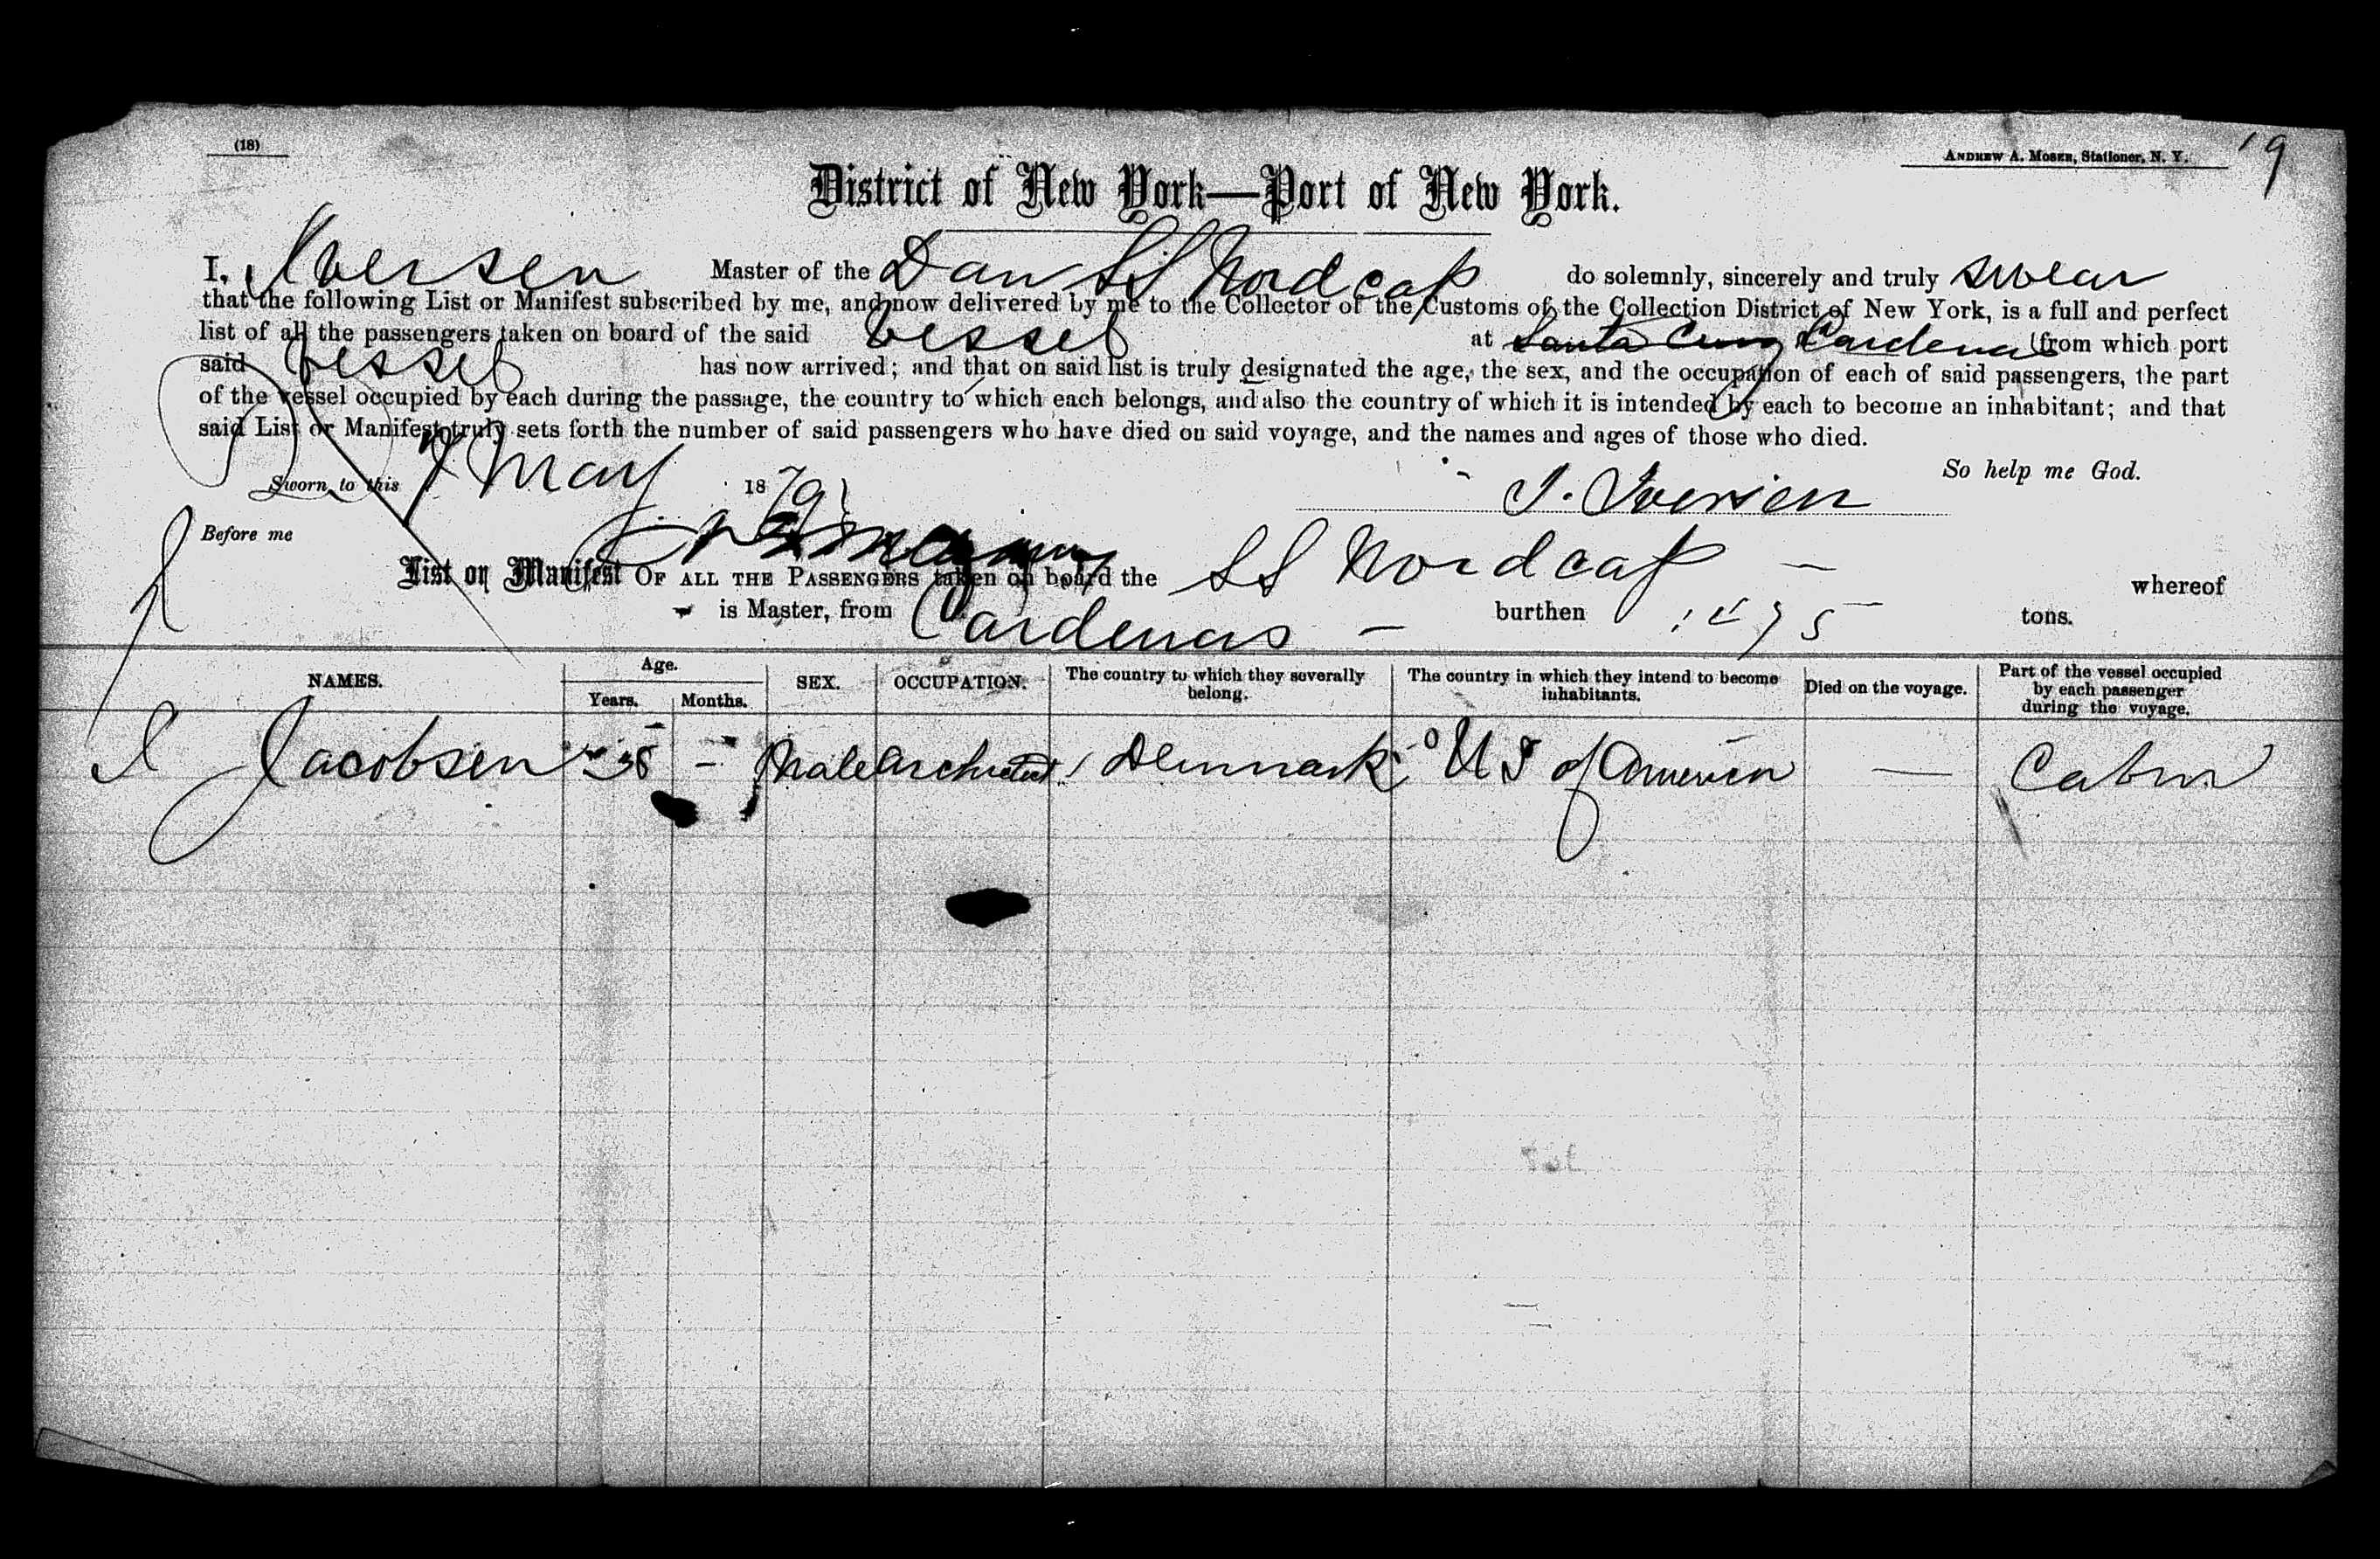 (18)
ANDREW A. MOSER, Stationer, N. Y.
19
District of New York—Port of New York.
I, Iversen Master of the Dan SS Nordcap do solemnly, sincerely and truly swear
that the following List or Manifest subscribed by me, and now delivered by me to the Collector of the Customs of the Collection District of New York, is a full and perfect
list of all the passengers taken on board of the said Vessel at Santa Cruz Cardenas from which port
said Vessel has now arrived; and that on said list is truly designated the age, the sex, and the occupation of each of said passengers, the part
of the vessel occupied by each during the passage, the country to which each belongs, and also the country of which it is intended by each to become an inhabitant; and that
said List or Manifest truly sets forth the number of said passengers who have died on said voyage, and the names and ages of those who died.
So help me God.
Sworn to this May 1879
J. Iversen
Before me
List or Manifest OF ALL THE PASSENGERS taken on board the SS Nordcap — whereof
is Master, from Cardenas — burthen tons.
NAMES. Age. Years. Months. SEX. OCCUPATION. The country to which they severally belong. The country in which they intend to become inhabitants. Died on the voyage. Part of the vessel occupied by each passenger during the voyage.
Jacobsen 38 - Male Architect Denmark U S of America — Cabin